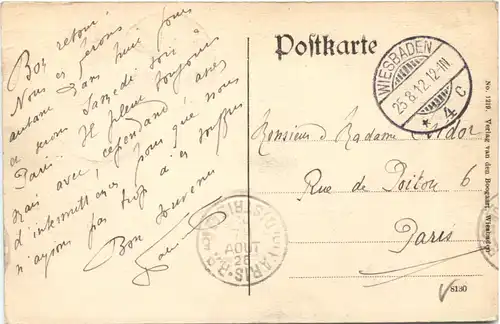 Bon retour!
Nous en ferons
autant dans huit jours
et serons Samedi soir à
Paris. Il pleut toujours
mais avec, cependant assez
d'intermittences pour que nous
n'ayons pas trop à en souffrir
Bon Souvenir
Postkarte
WIESBADEN
25.8.12.12-1N.
* 4 c
Monsieur & Madame
Rue de Poitou 6
Paris
PARIS
DISTRIB
AOUT
No. 1219 Verlag van den Boogaart, Wiesbaden
8130